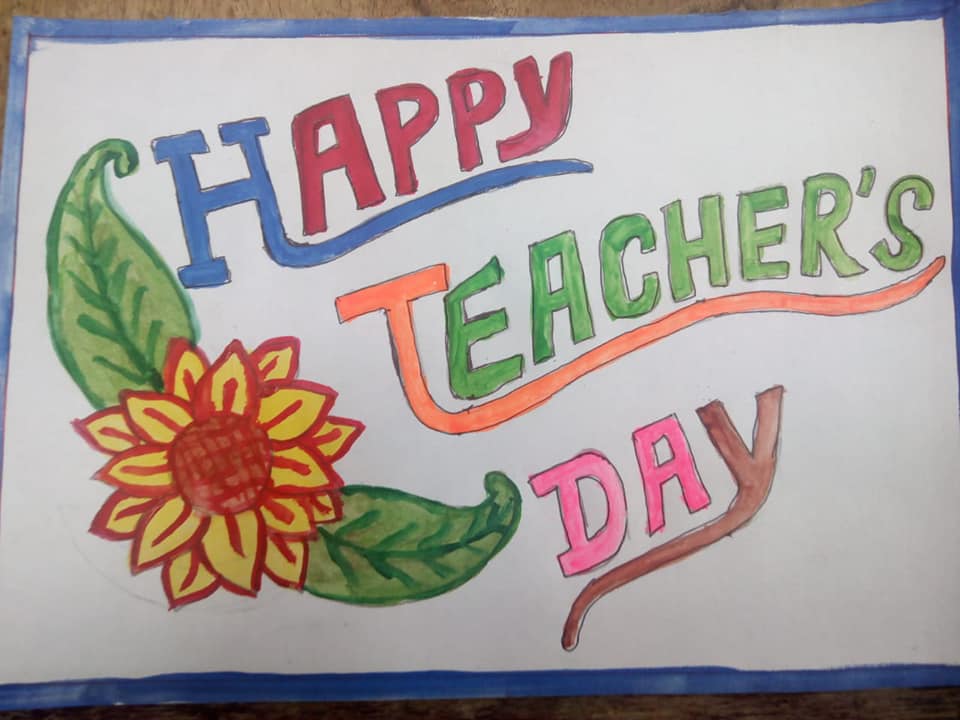 HAPPY
TEACHER'S
DAY